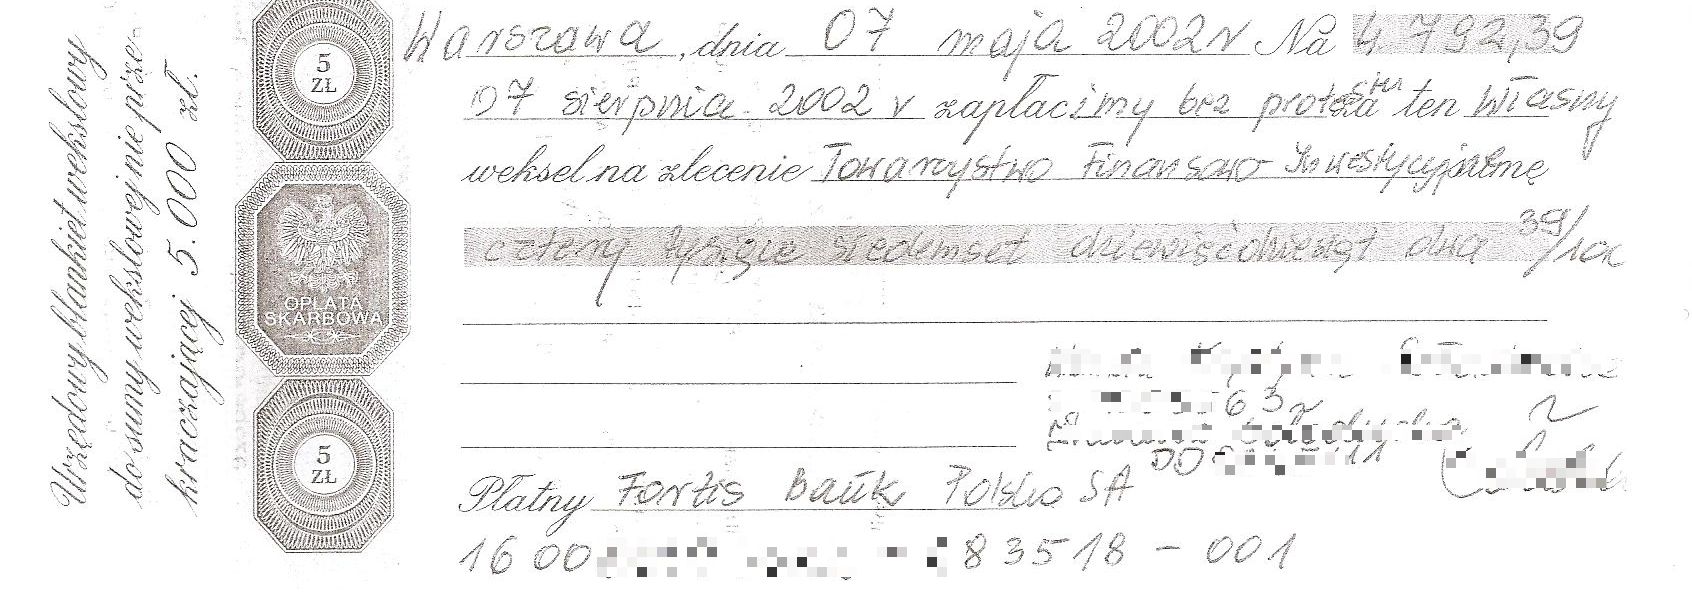 Urzędowy blankiet wekslowy
do sumy wekslowej nie prze-
kraczającej 5.000 zł.
5
ZŁ
OPŁATA
SKARBOWA
5
ZŁ
Warszawa, dnia 07 maja 2002r Na 4 792,39
07 sierpnia 2002 r zapłacimy bez protestu ten własny
weksel na zlecenie Towarzystwo Finansowo Inwestycyjne sumę
cztery tysiące siedemset dziewięćdziesiąt dwa 39/100
63r
Płatny Fortis Bank Polska SA
1600 83518-001